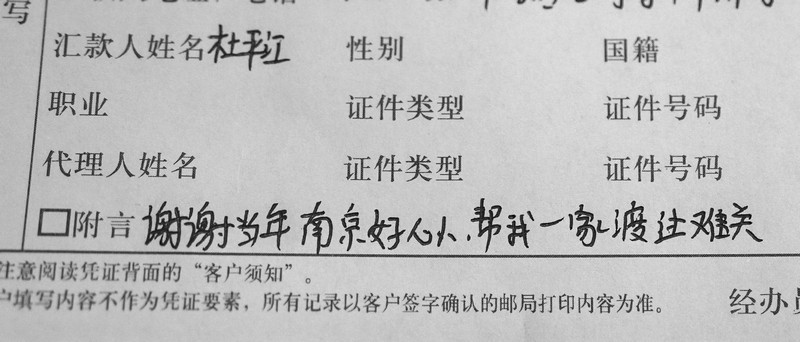 写
汇款人姓名 杜平江 性别 国籍
职业 证件类型 证件号码
代理人姓名 证件类型 证件号码
附言 谢谢当年南京好心人,帮我一家渡过难关
注意阅读凭证背面的“客户须知”。
户填写内容不作为凭证要素，所有记录以客户签字确认的邮局打印内容为准。 经办员